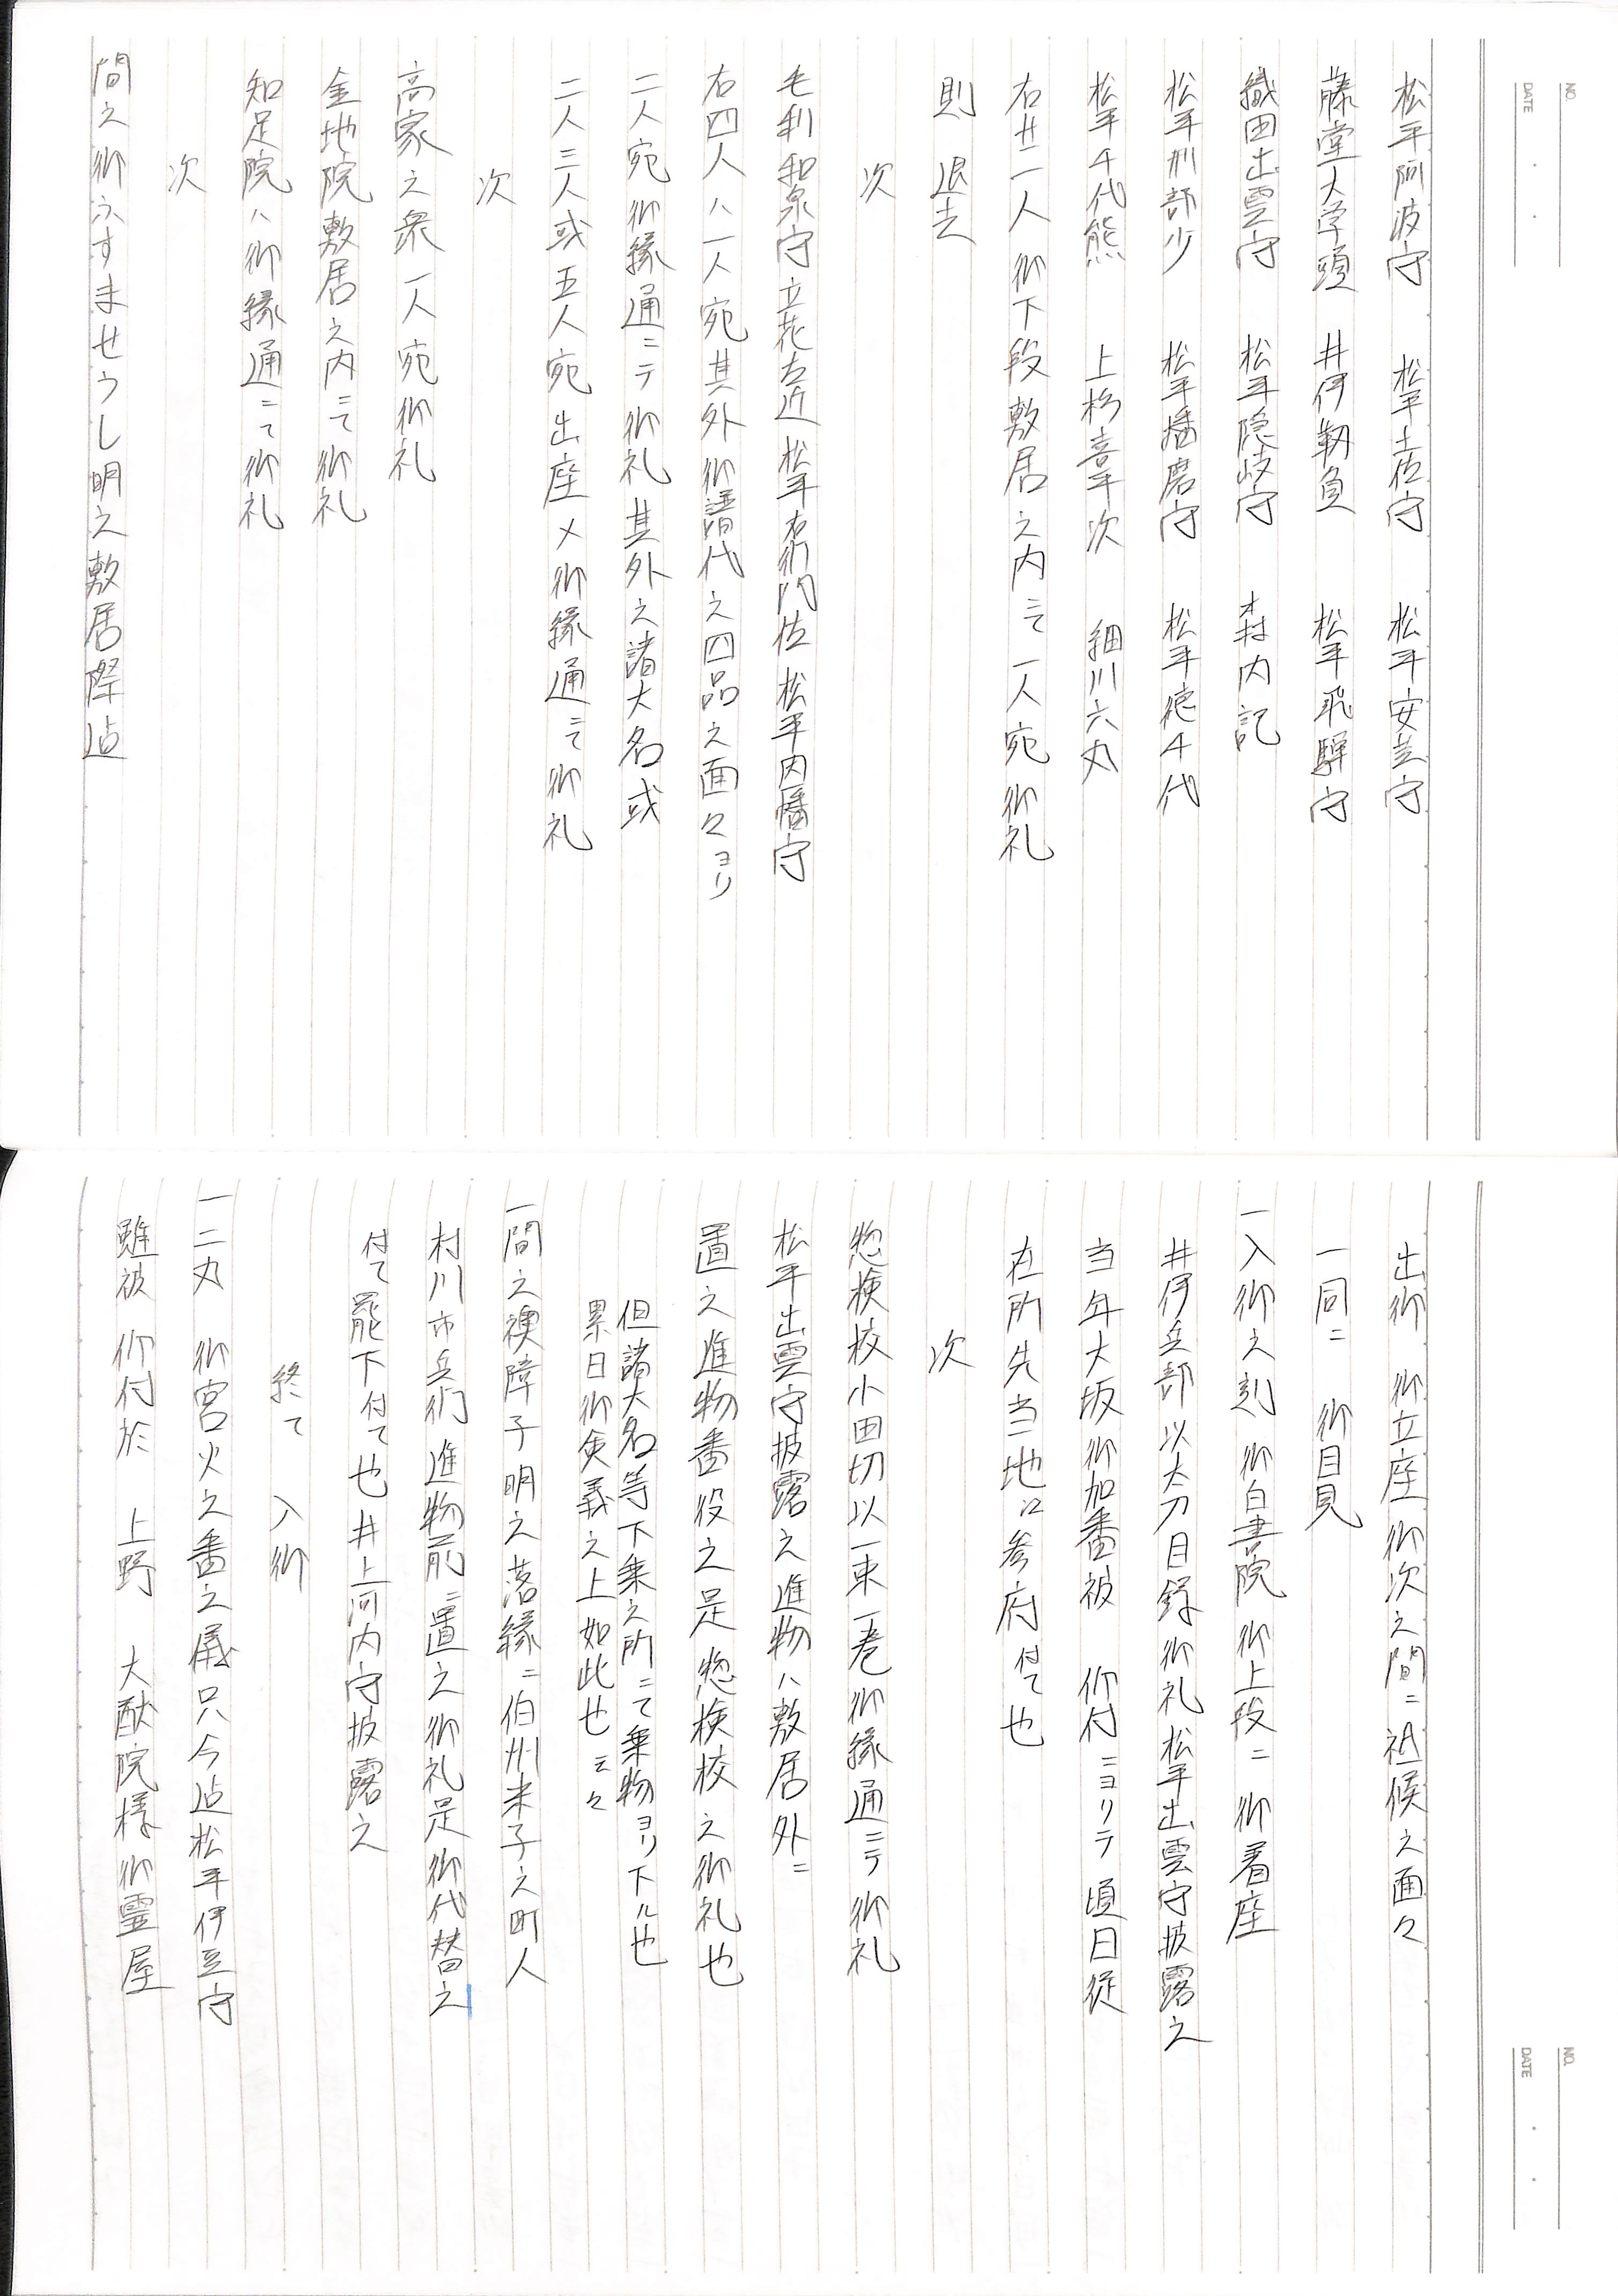 NO.
DATE
松平阿波守 松平土佐守 松平安芸守
藤堂大学頭 井伊靱負 松平飛騨守
織田出雲守 松平隠岐守 森内記
松平刑部少 松平播磨守 松平徳千代
松平千代熊 上杉喜平次 細川六丸
右廿二人御下段敷居之内ニて一人宛御礼
則退去
次
毛利和泉守立花左近松平右衛門佐松平因幡守
右四人ハ一人宛其外御譜代之四品之面々ヨリ
二人宛御縁通ニテ御礼其外之諸大名或
二人三人或五人宛出座〆御縁通ニて御礼
次
高家之衆一人宛御礼
金地院敷居之内ニて御礼
知足院ハ御縁通ニて御礼
次
間之御ふすませうし明之敷居際迠
NO.
DATE
出御 御立座御次之間ニ祗候之面々
一同ニ 御目見
一入御之刻 御白書院御上段ニ 御着座
井伊兵部以太刀目録御礼松平出雲守披露之
当年大坂御加番被 仰付ニヨリテ頃日従
在所先当地江参府付て也
次
惣検校小田切以一束一巻御縁通ニテ御礼
松平出雲守披露之進物ハ敷居外ニ
置之進物番役之是惣検校之御礼也
但諸大名等下乗之所ニて乗物ヨリ下ル也
累日御僉義之上如此也云々
一間之襖障子明之落縁ニ伯州米子之町人
村川市兵衛進物前ニ置之御礼是御代替之
付て罷下付て也井上河内守披露之
終て 入御
一二丸 御宮火之番之儀只今迠松平伊豆守
雖被 仰付於 上野 大猷院様御霊屋